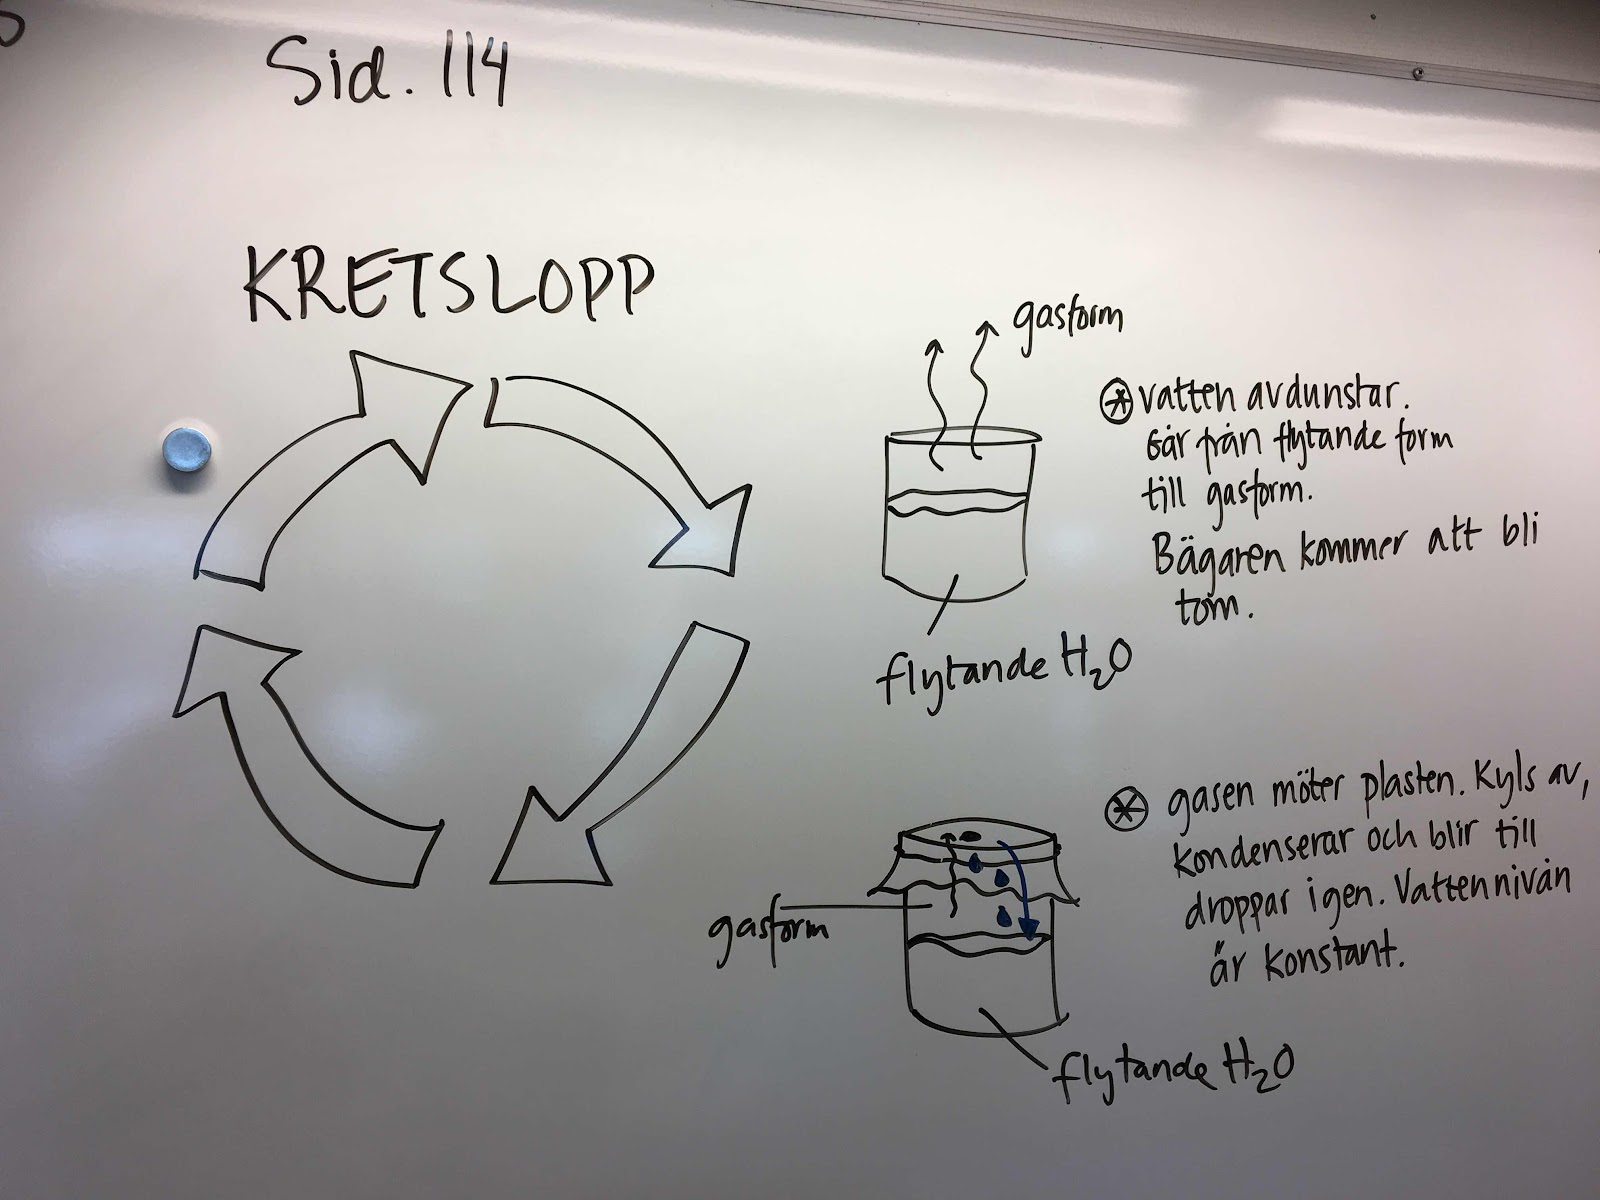 Sid. 114
KRETSLOPP
gasform
vatten avdunstar.
Går från flytande form
till gasform.
Bägaren kommer att bli
tom.
flytande H₂O
gasen möter plasten. Kyls av,
kondenserar och blir till
droppar igen. Vattennivån
är konstant.
gasform
flytande H₂O